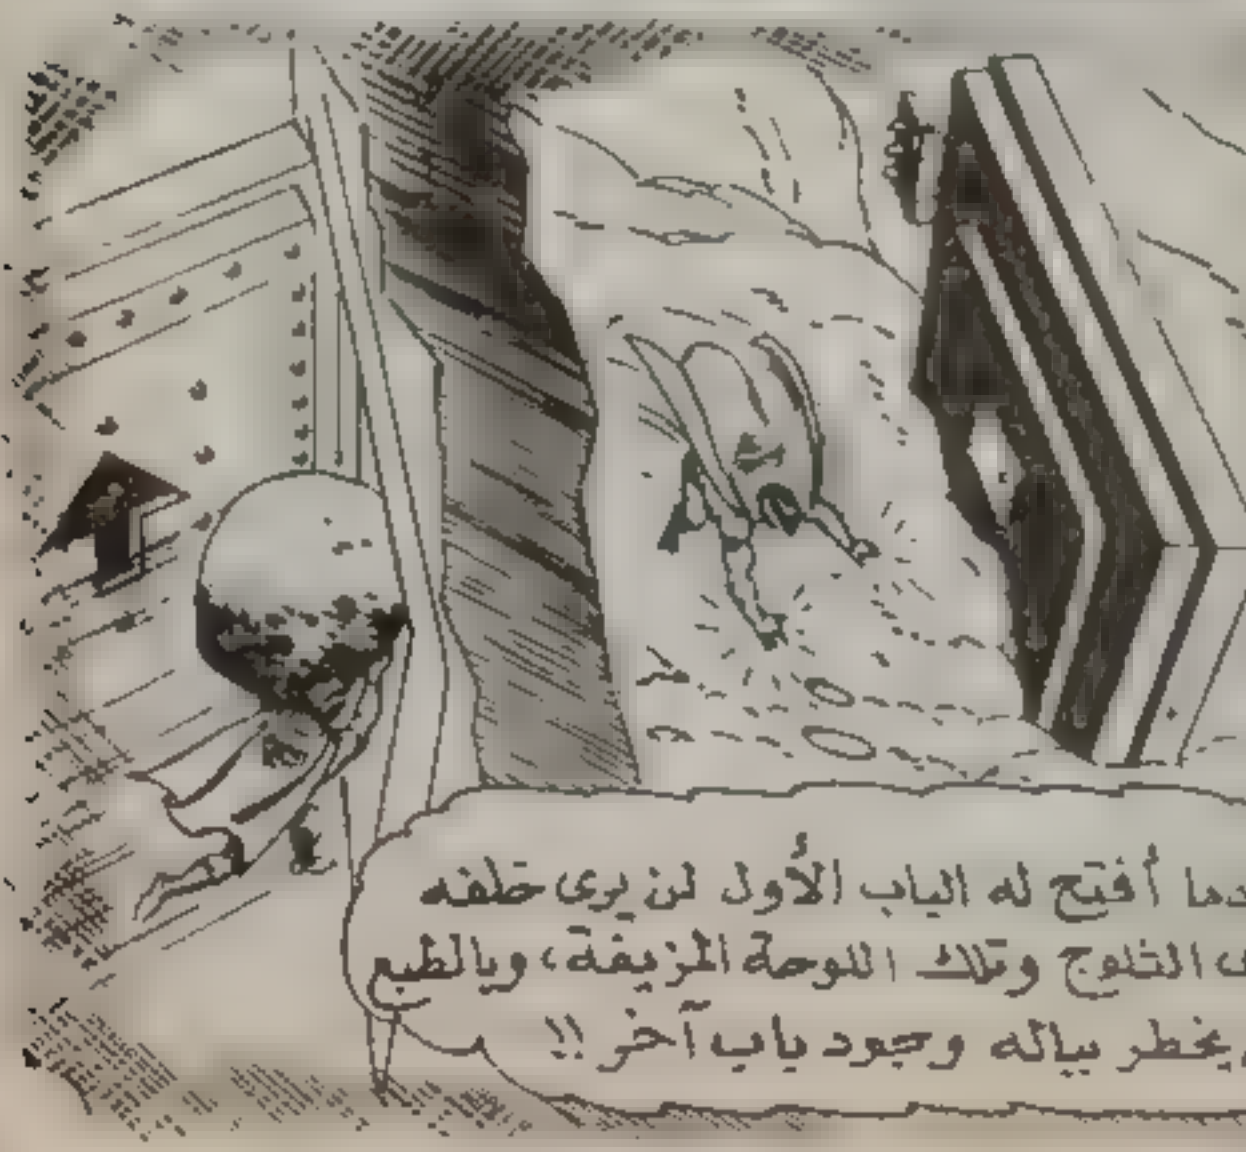 دما أفتح له الباب الأول لن يرى خلفه
الثلوج وتلك اللوحة المزيفة، وبالطبع
يخطر بباله وجود باب آخر!!